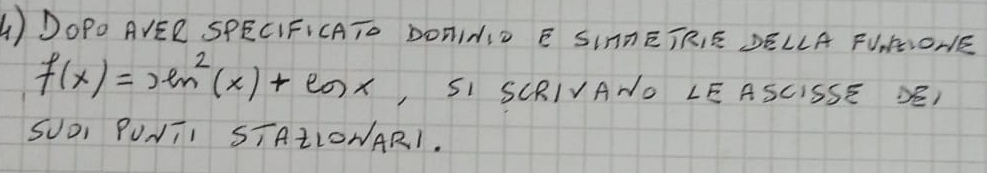 4) DOPO AVER SPECIFICATO DOMINIO E SIMMETRIE DELLA FUNZIONE
f(x) = sen²(x) + cos x , SI SCRIVANO LE ASCISSE DEI
SUOI PUNTI STAZIONARI.